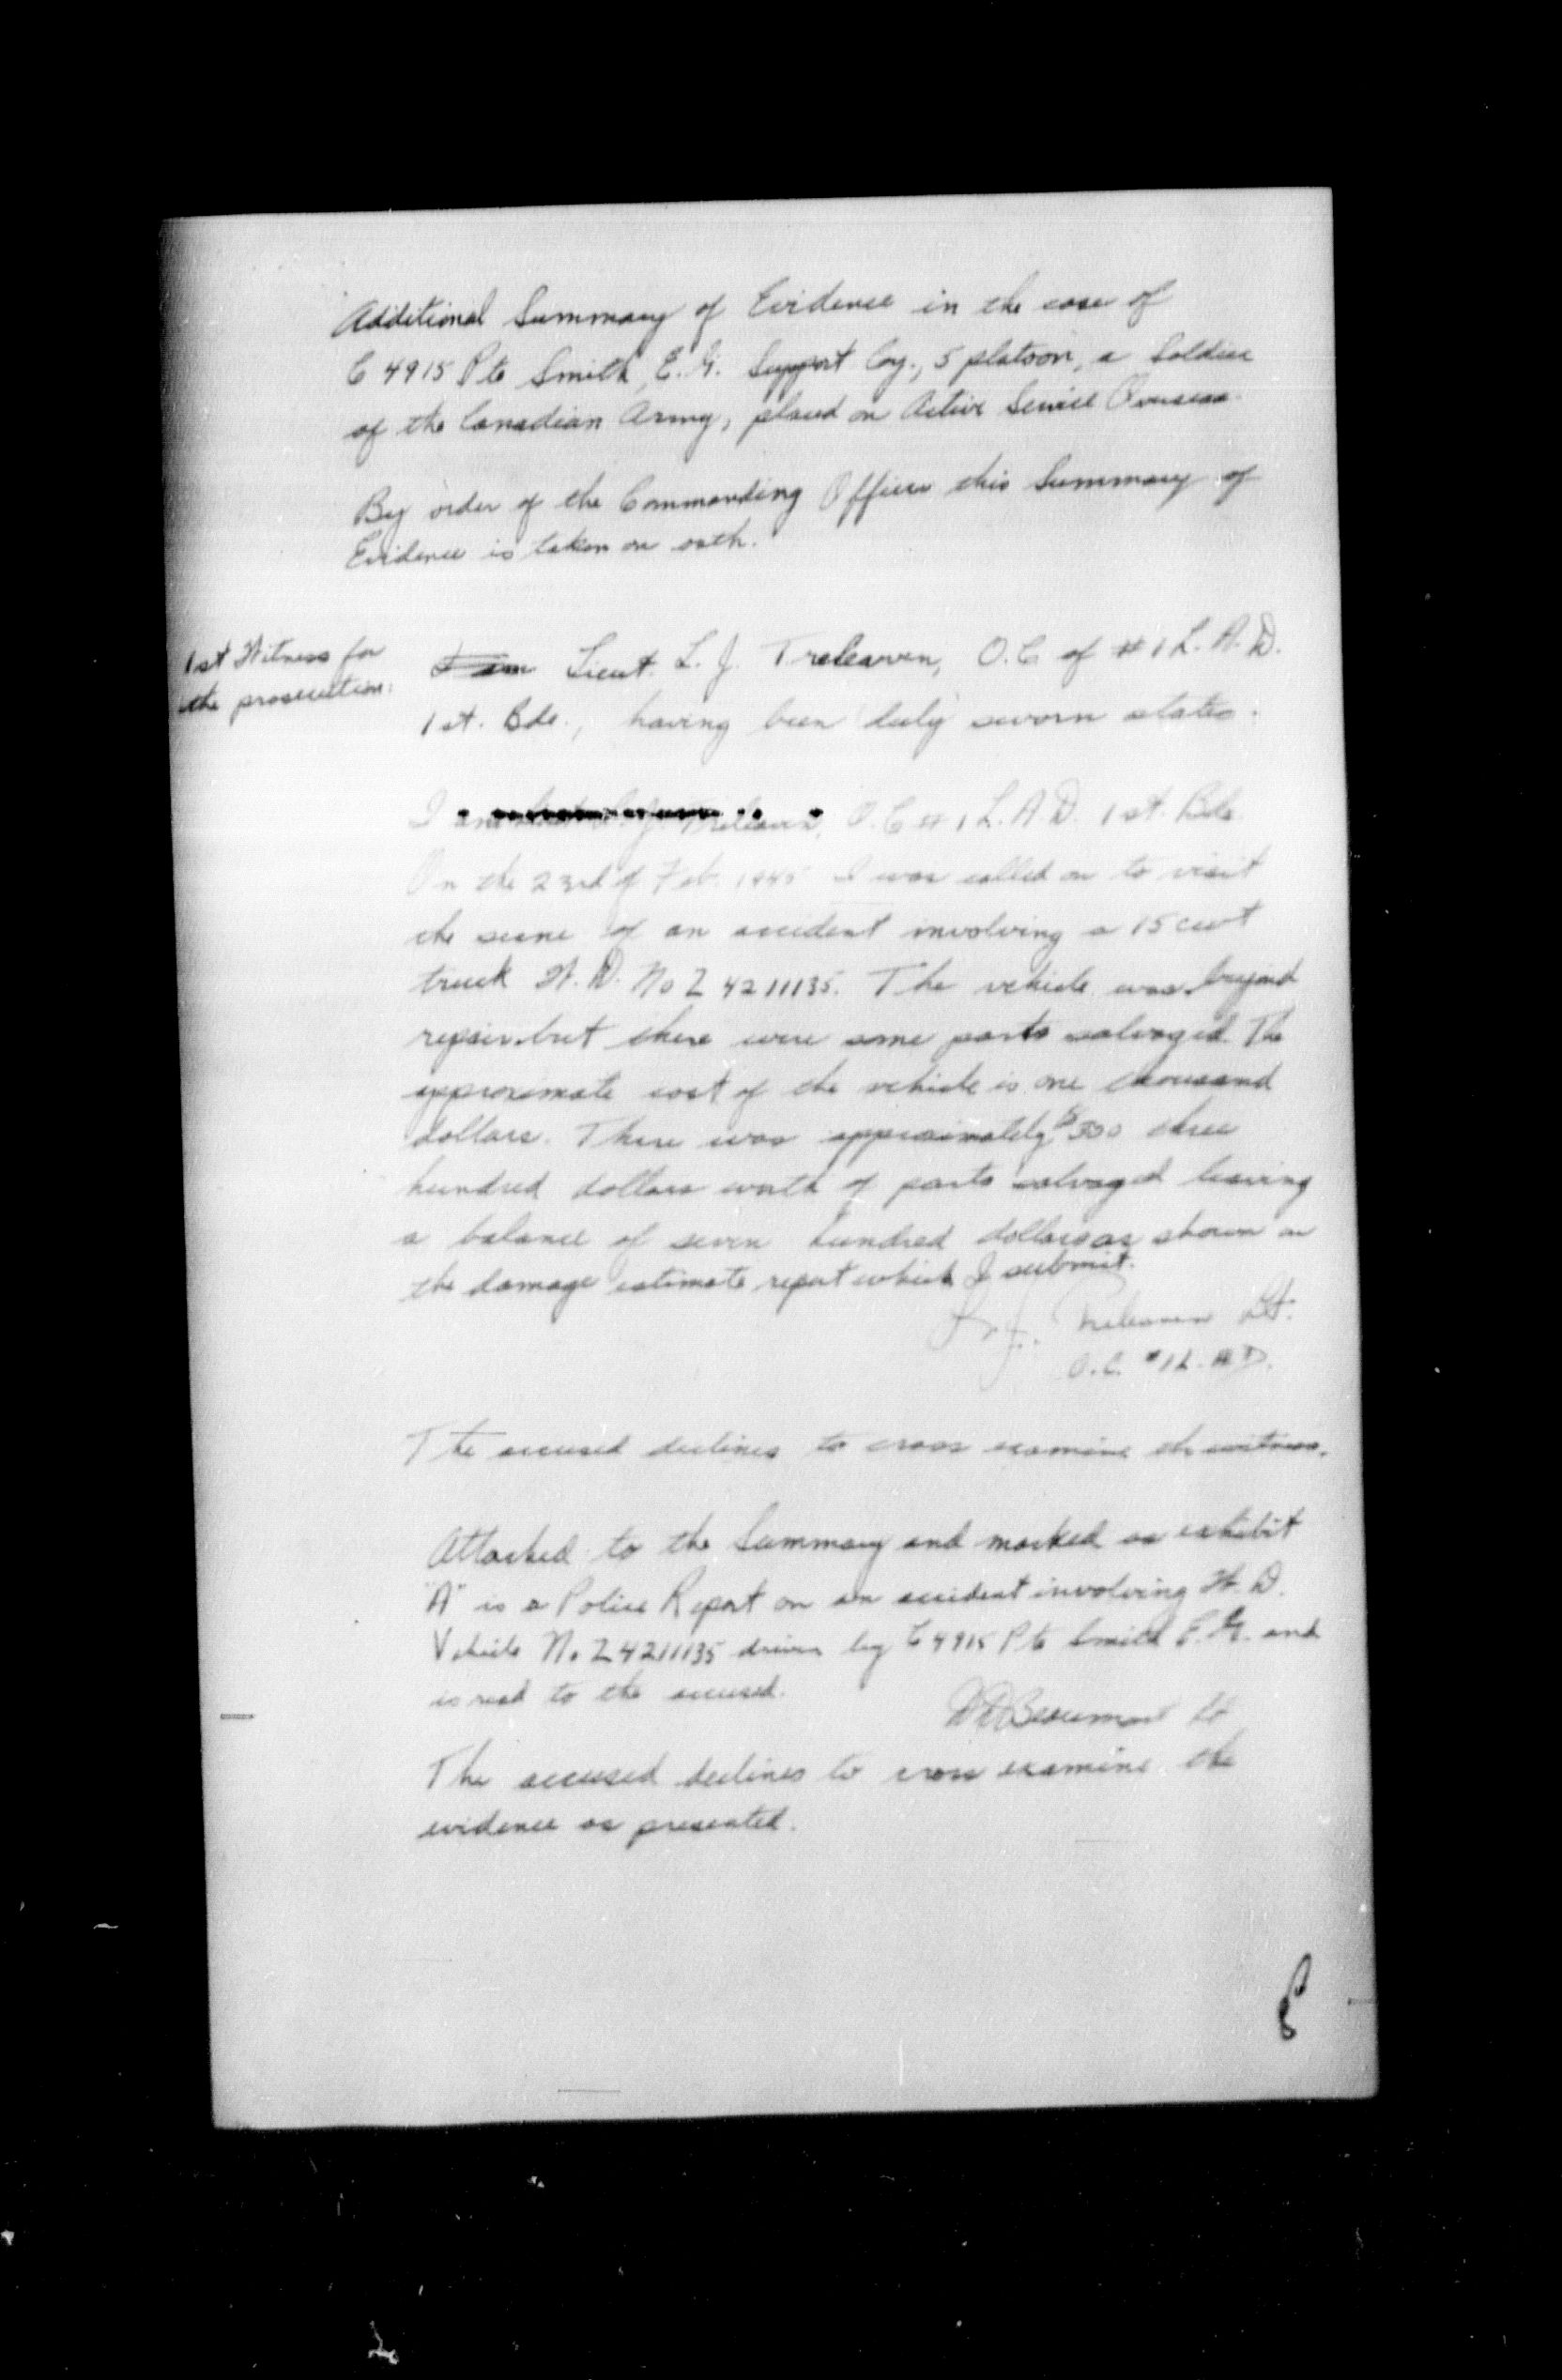 Additional Summary of Evidence in the case of
C 4915 Pte Smith, E. G. Support Coy., 5 platoon, a Soldier
of the Canadian Army, placed on Active Service Overseas.
By order of the Commanding Officer this Summary of
Evidence is taken on oath.
1st Witness for
the prosecution:
I am Lieut. L. J. Treleaven, O.C. of # 1 L.A.D.
1st. Bde., having been duly sworn states.
I am Treleaven, O.C # 1 L.A.D. 1st. Bde.
On the 23rd of Feb. 1945 I was called on to visit
the scene of an accident involving a 15 cwt
truck W.D. No Z 4211135. The vehicle was beyond
repair but there were some parts salvaged. The
approximate cost of the vehicle is one thousand
dollars. There was approximately $300 three
hundred dollars worth of parts salvaged leaving
a balance of seven hundred dollars as shown on
the damage estimate report which I submit.
L. J. Treleaven Lt.
O.C. #1 L.A.D.
The accused declines to cross examine the witness.
Attached to the Summary and marked as exhibit
"A" is a Police Report on an accident involving W.D.
Vehicle No Z 4211135 driven by C 4915 Pte Smith E.G. and
is read to the accused.
Beaumont Lt
The accused declines to cross examine the
evidence as presented.